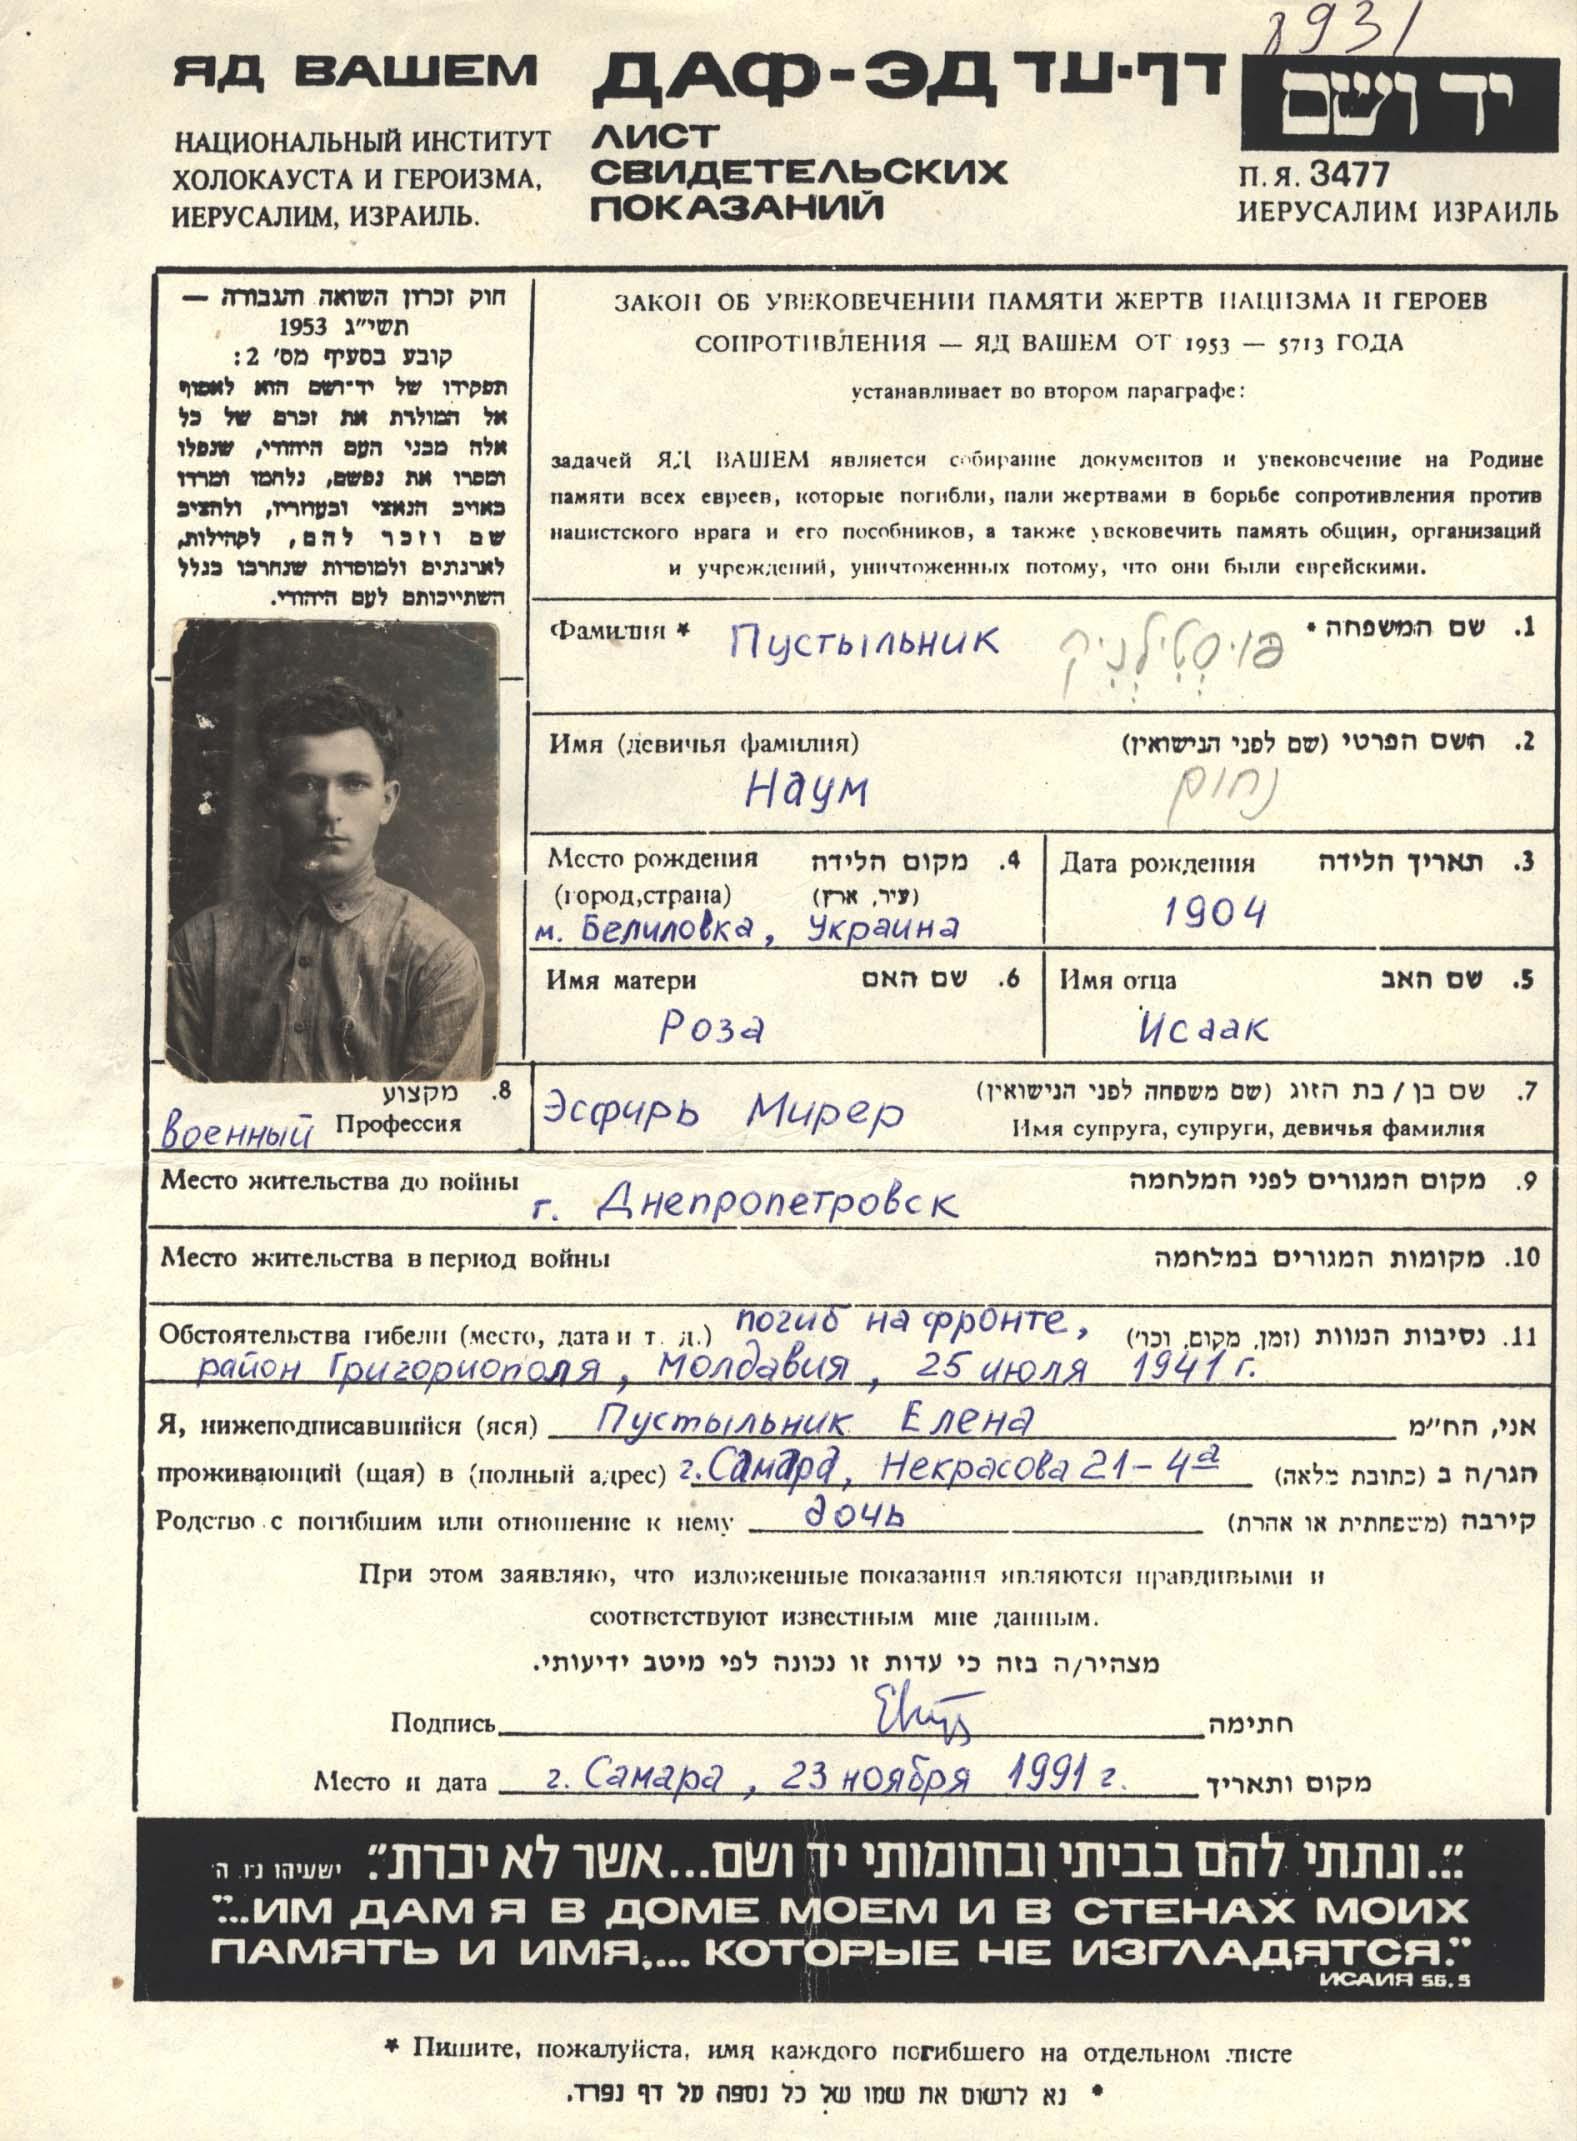 8931
ЯД ВАШЕМ
НАЦИОНАЛЬНЫЙ ИНСТИТУТ
ХОЛОКАУСТА И ГЕРОИЗМА,
ИЕРУСАЛИМ, ИЗРАИЛЬ.
ДАФ-ЭД דף-עד
ЛИСТ
СВИДЕТЕЛЬСКИХ
ПОКАЗАНИЙ
יד ושם
П.Я. 3477
ИЕРУСАЛИМ ИЗРАИЛЬ
חוק זכרון השואה והגבורה —
תשי״ג 1953
קובע בסעיף מס׳ 2:
תפקידו של יד־ושם הוא לאסוף
אל המולדת את זכרם של כל
אלה מבני העם היהודי, שנפלו
ומסרו את נפשם, נלחמו ומרדו
באויב הנאצי ובעוזריו, ולהציב
שם וזכר להם, לקהילות,
לארגונים ולמוסדות שנחרבו בגלל
השתייכותם לעם היהודי.
ЗАКОН ОБ УВЕКОВЕЧЕНИИ ПАМЯТИ ЖЕРТВ НАЦИЗМА И ГЕРОЕВ
СОПРОТИВЛЕНИЯ — ЯД ВАШЕМ ОТ 1953 — 5713 ГОДА
устанавливает во втором параграфе:
задачей ЯД ВАШЕМ является собирание документов и увековсчение на Родине
памяти всех евреев, которые погибли, пали жертвами в борьбе сопротивления против
нацистского врага и его пособников, а также увсковечить память общин, организаций
и учреждений, уничтоженных потому, что они были еврейскими.
Фамилия * Пустыльник פויסטילניק 1. שם המשפחה *
Имя (девичья фамилия) 2. השם הפרטי (שם לפני הנישואין)
Наум נחום
Место рождения 4. מקום הלידה
(город,страна) (עיר, ארץ)
м. Белиловка, Украина
Дата рождения 3. תאריך הלידה
1904
Имя матери 6. שם האם
Роза
Имя отца 5. שם האב
Исаак
8. מקצוע
Военный Профессия
7. שם בן / בת הזוג (שם משפחה לפני הנישואין)
Эсфирь Мирер
Имя супруга, супруги, девичья фамилия
Место жительства до войны г. Днепропетровск 9. מקום המגורים לפני המלחמה
Место жительства в период войны 10. מקומות המגורים במלחמה
Обстоятельства гибели (место, дата и т. д.) погиб на фронте, 11. נסיבות המוות (זמן, מקום, וכו׳)
район Григориополя, Молдавия, 25 июля 1941 г.
Я, нижеподписавшийся (яся) Пустыльник Елена אני, הח״מ
проживающий (щая) в (полный адрес) г. Самара, Некрасова 21-4а הגר/ה ב (כתובת מלאה)
Родство с погибшим или отношение к нему дочь קירבה (משפחתית או אהרת)
При этом заявляю, что изложенные показания являются правдивыми и
соответствуют известным мне данным.
מצהיר/ה בזה כי עדות זו נכונה לפי מיטב ידיעותי.
Подпись חתימה
Место и дата г. Самара, 23 ноября 1991 г. מקום ותאריך
"...ונתתי להם בביתי ובחומותי יד ושם...אשר לא יכרת." ישעיהו נ״ו, ה׳
"...ИМ ДАМ Я В ДОМЕ МОЕМ И В СТЕНАХ МОИХ
ПАМЯТЬ И ИМЯ,... КОТОРЫЕ НЕ ИЗГЛАДЯТСЯ."
ИСАИЯ 56.5
* Пишите, пожалуйста, имя каждого погибшего на отдельном листе
* נא לרשום את שמו של כל נספה על דף נפרד.